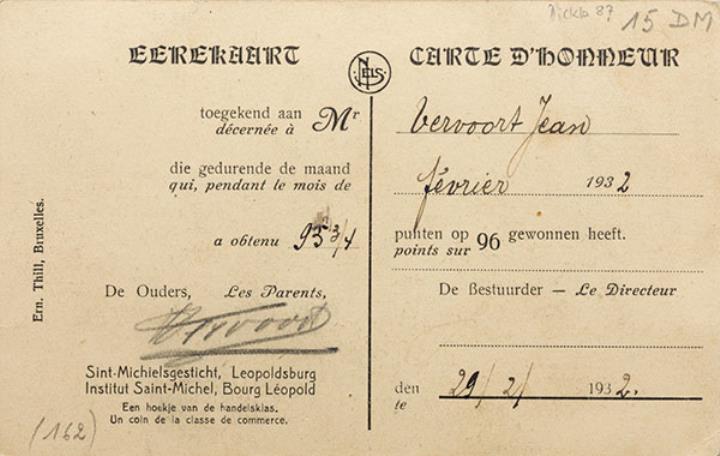 15 DM
EEREKAART
NELS
CARTE D'HONNEUR
toegekend aan
décernée à Mr Vervoort Jean
die gedurende de maand
qui, pendant le mois de février 1932
a obtenu 95 3/4 punten op 96 gewonnen heeft.
points sur
De Ouders, Les Parents,
Vervoort
Sint-Michielsgesticht, Leopoldsburg
Institut Saint-Michel, Bourg Léopold
Een hoekje van de handelsklas.
Un coin de la classe de commerce.
De Bestuurder — Le Directeur
den 29/2/ 1932.
le
Ern. Thill, Bruxelles.
(162)